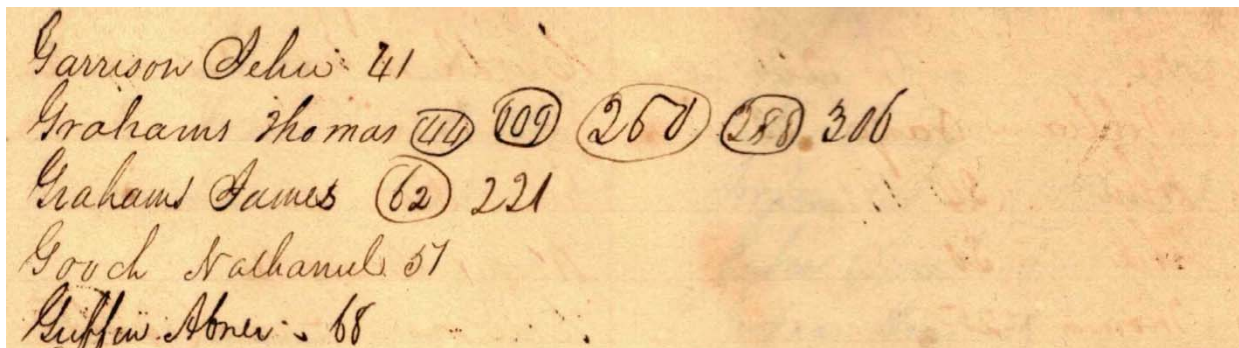 Garrison Jehu 41
Grahams Thomas 44 109 260 288 306
Grahams James 62 221
Gooch Nathaniel 57
Griffin Abner 68